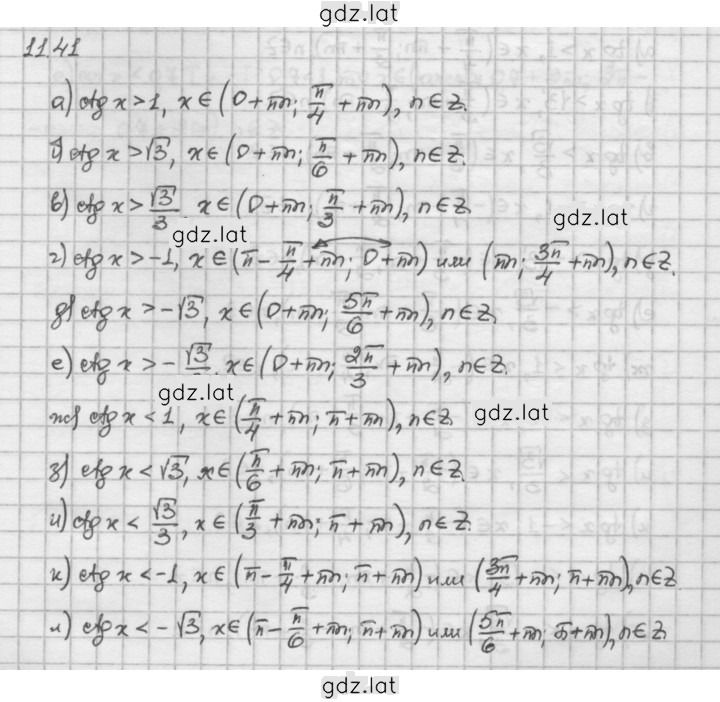 gdz.lat
11.41
а) ctg x > 1, x ∈ (0 + πn; π/4 + πn), n ∈ Z.
б) ctg x > √3, x ∈ (0 + πn; π/6 + πn), n ∈ Z.
в) ctg x > √3/3. x ∈ (0 + πn; π/3 + πn), n ∈ Z.
gdz.lat
gdz.lat
г) ctg x > -1, x ∈ (π - π/4 + πn; 0 + πn) или (πn; 3π/4 + πn), n ∈ Z.
д) ctg x > -√3, x ∈ (0 + πn; 5π/6 + πn), n ∈ Z.
е) ctg x > - √3/ . x ∈ (0 + πn; 2π/3 + πn), n ∈ Z.
gdz.lat
gdz.lat
ж) ctg x < 1, x ∈ (π/4 + πn; π + πn), n ∈ Z
з) ctg x < √3, x ∈ (π/6 + πn; π + πn), n ∈ Z.
и) ctg x < √3/3, x ∈ (π/3 + πn; π + πn), n ∈ Z.
к) ctg x < -1, x ∈ (π - π/4 + πn; π + πn) или (3π/4 + πn; π + πn), n ∈ Z
л) ctg x < -√3, x ∈ (π - π/6 + πn; π + πn) или (5π/6 + πn; π + πn), n ∈ Z
gdz.lat